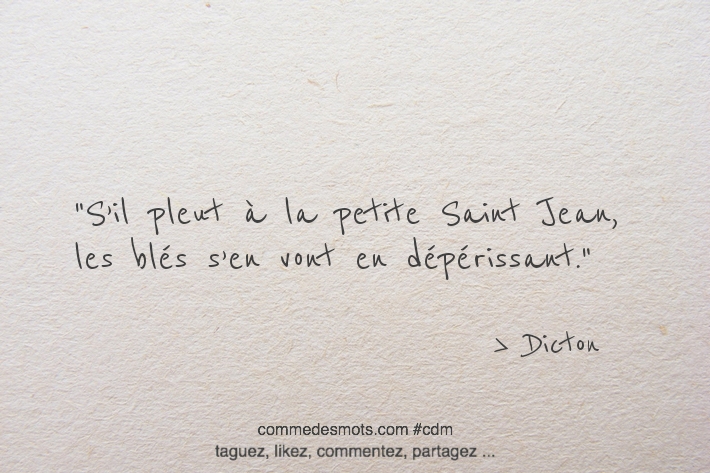 "S'il pleut à la petite Saint Jean,
les blés s'en vont en dépérissant."
> Dicton
commedesmots.com #cdm
taguez, likez, commentez, partagez ...